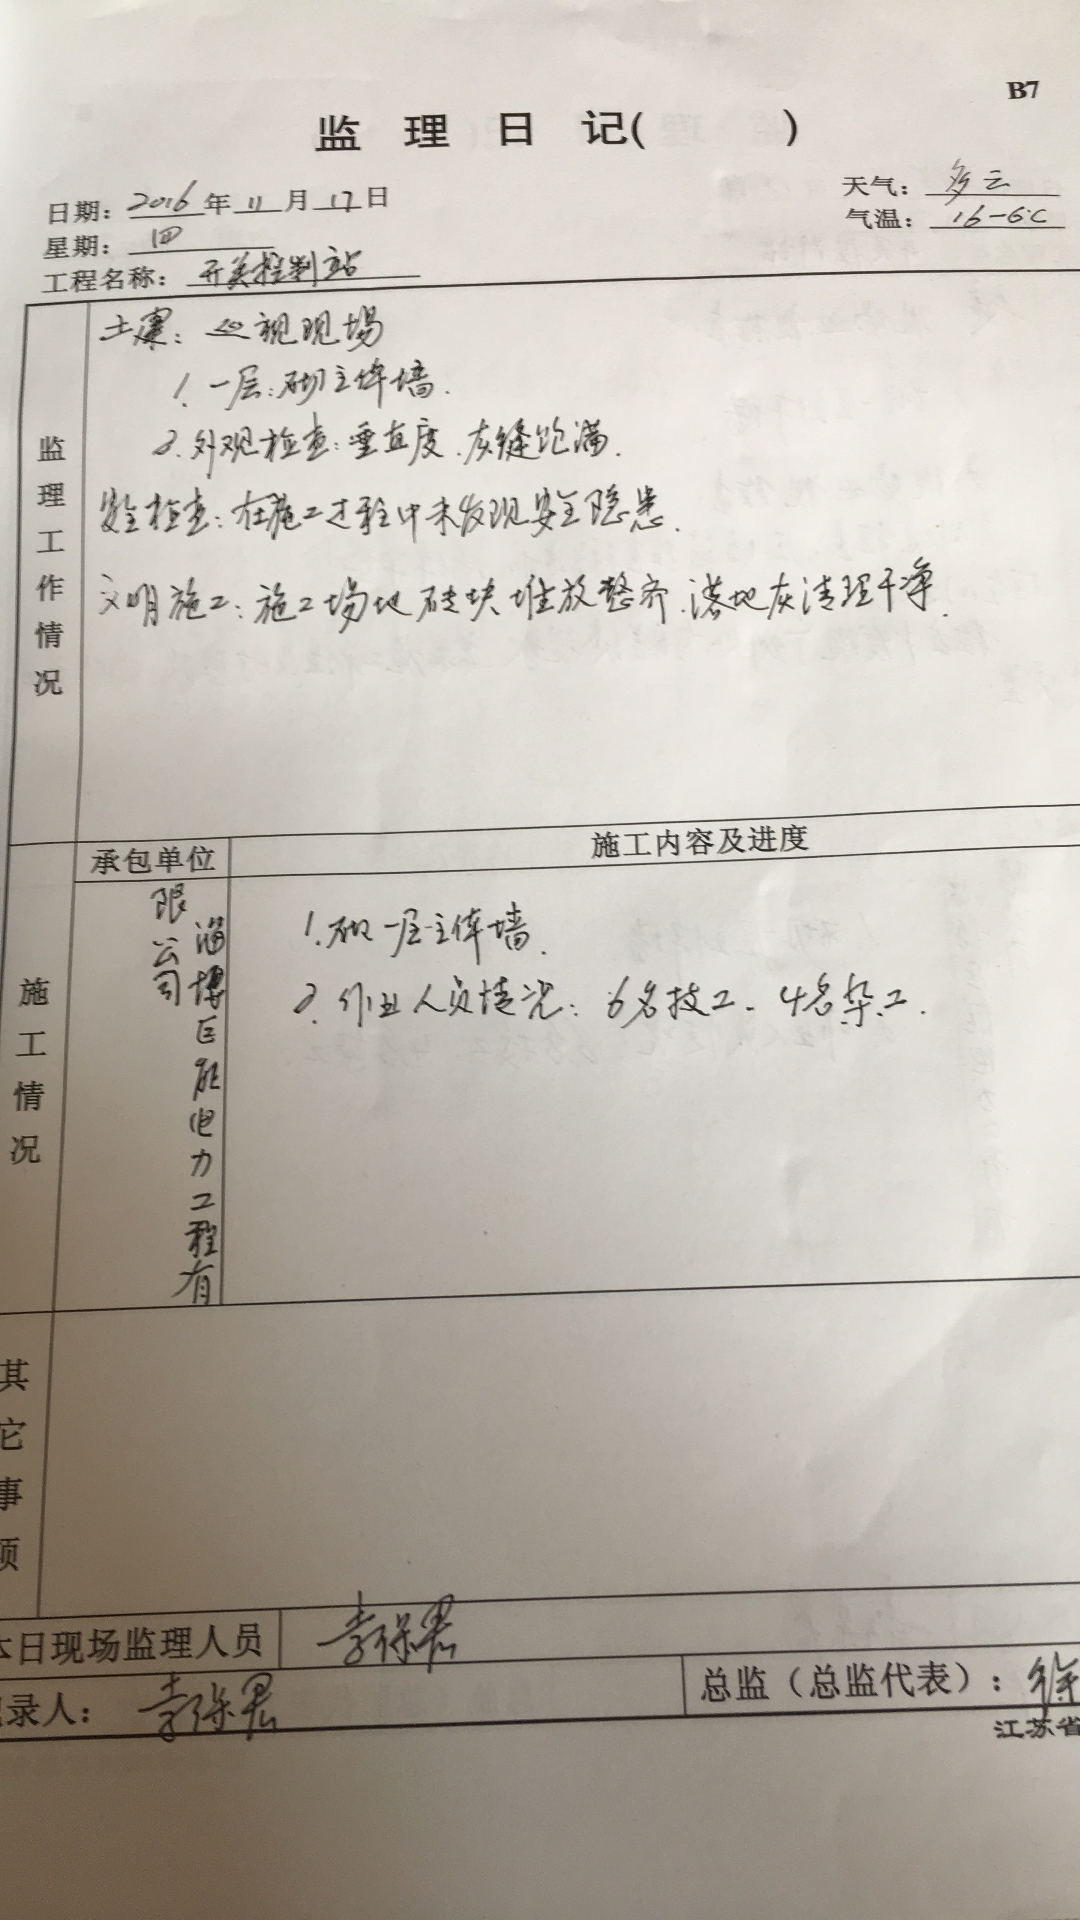 B7
监 理 日 记(        )
日期：2016年11月17日
天气：多云
星期：四
气温：16-6℃
工程名称：开关控制站
监理工作情况
土建：巡视现场
1. 一层：砌主体墙.
2. 外观检查：垂直度、灰缝饱满.
安全检查：在施工过程中未发现安全隐患.
文明施工：施工场地砖块堆放整齐、落地灰清理干净.
施工情况
承包单位
施工内容及进度
淄博巨能电力工程有
限公司
1. 砌一层主体墙.
2. 作业人员情况：6名技工、4名杂工.
其它事项
本日现场监理人员
李保君
记录人：李保君
总监（总监代表）：徐
江苏省